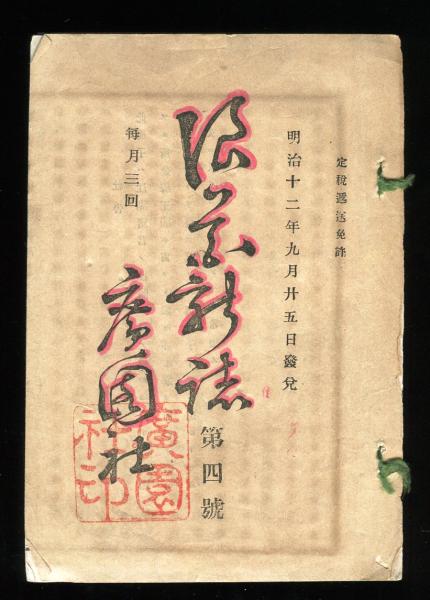 定稅遞送免許
明治十二年九月廿五日發兌
浪華新誌
第四號
每月三回
廣園社
廣園
社印